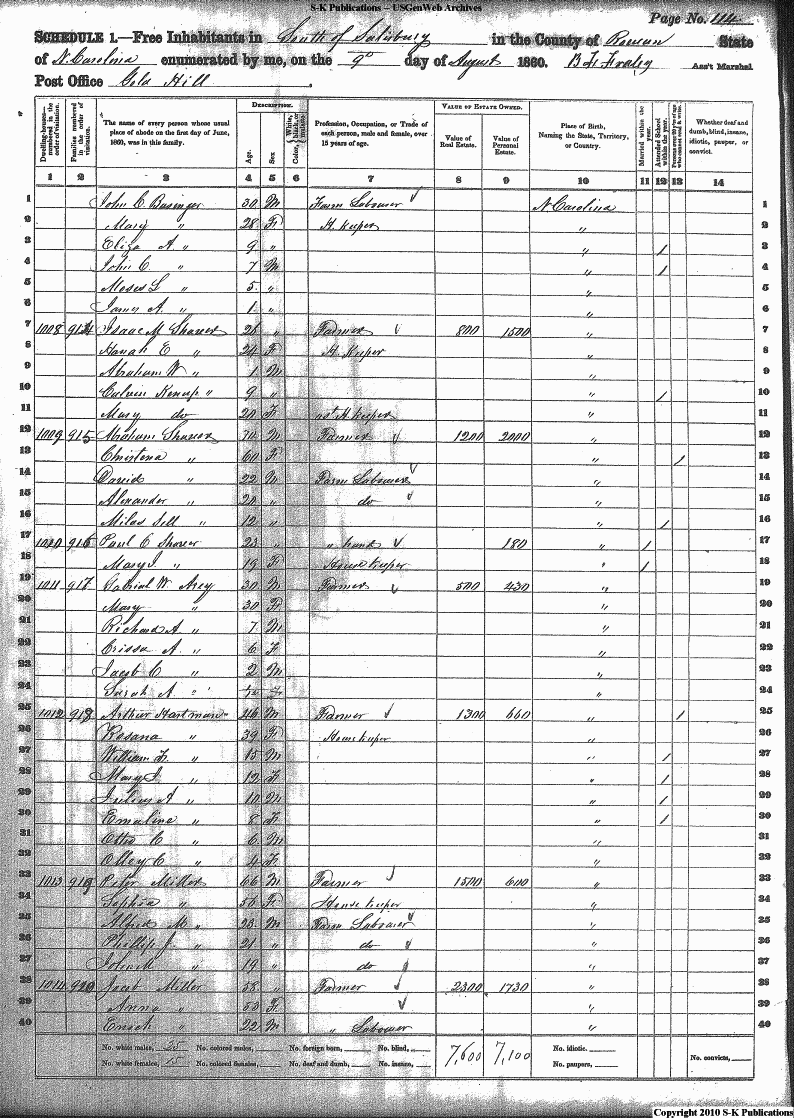 S-K Publications -- USGenWeb Archives
Page No. 114
SCHEDULE 1.—Free Inhabitants in South of Salisbury in the County of Rowan State
of N. Carolina enumerated by me, on the 9th day of August 1860. Ass't Marshal
Post Office Gold Hill
DESCRIPTION. VALUE OF ESTATE OWNED.
Dwelling-houses numbered in the order of visitation. Families numbered in the order of visitation. The name of every person whose usual place of abode on the first day of June, 1860, was in this family. Age. Sex Color, White, black, or mulatto. Profession, Occupation, or Trade of each person, male and female, over 15 years of age. Value of Real Estate. Value of Personal Estate. Place of Birth, Naming the State, Territory, or Country. Married within the year. Attended School within the year. Whether deaf and dumb, blind, insane, idiotic, pauper, or convict.
1 2 3 4 5 6 7 8 9 10 11 12 13 14
1 John C. Basinger 30 M Farm Labourer N Carolina 1
2 Mary " 28 F H. keeper " 2
3 Eliza A. " 9 " " / 3
4 John C. " 7 M " / 4
5 Moses L " 5 " " 5
6 A. " 1 " " 6
7 1008 914 Isaac M 28 " Farmer 800 1500 " 7
8 E " 24 F H. Keeper " 8
9 Abraham W " 1 M " 9
10 Calvin " 9 " " / 10
11 Mary do 20 F H. keeper " 11
12 1009 915 70 M Farmer 1200 2000 " 12
13 Christena " 60 F " / 13
14 David " 22 M Farm Labourer " 14
15 Alexander " 20 " do " 15
16 Milas " 12 " " / 16
17 916 Paul C 23 " " hand 180 " / 17
18 Mary J. " 19 F House keeper " / 18
19 1011 917 Gabriel W Arey 30 M Farmer 500 430 " 19
20 Mary " 30 F " 20
21 Richard A " 7 M " 21
22 Crissa A " 6 F " 22
23 Jacob C " 2 M " 23
24 Sarah A " F " 24
25 1012 918 Arthur Hartman 46 M Farmer 1300 660 " / 25
26 Rosana " 39 F House keeper " 26
27 William F. " 15 M " / 27
28 Mary J. " 12 F " / 28
29 Julius A " 10 M " / 29
30 Emaline " 8 F " / 30
31 Otho C " 6 M " 31
32 Olley C " 4 F " 32
33 1013 919 Peter Miller 66 M Farmer 1500 600 " 33
34 Sophia " 58 F House keeper " 34
35 Alfred M " 23 M Farm Labourer " 35
36 Phillip J. " 21 " do " 36
37 John M " 19 " do " 37
38 1014 920 Jacob Miller 58 " Farmer 2300 1730 " 38
39 Anna " 53 F " 39
40 Enoch " 22 M " Labourer " 40
No. white males, 25 No. colored males, No. foreign born, No. blind, 7,600 7,100 No. idiotic.
No. white females, 15 No. colored females, No. deaf and dumb, No. insane, No. paupers, No. convicts,
Copyright 2010 S-K Publications